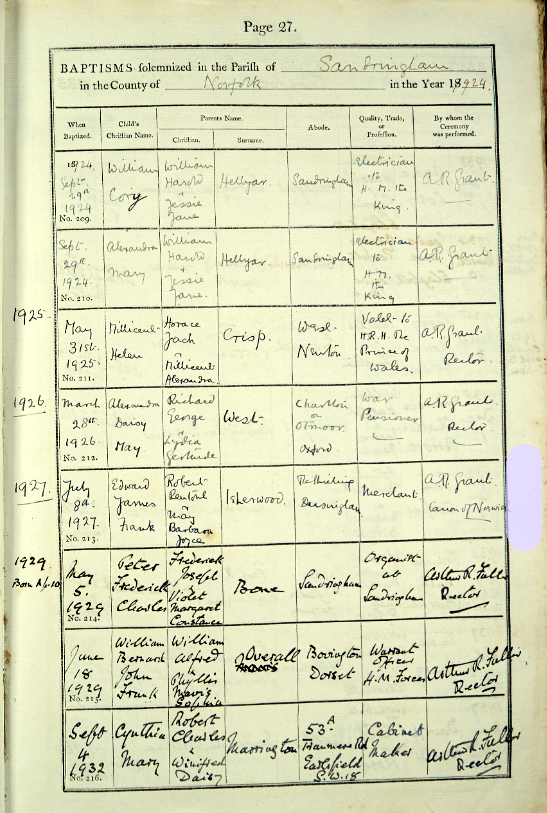 Page 27.
BAPTISMS solemnized in the Parish of Sandringham
in the County of Norfolk in the Year 18 1924.
When Baptized. Child's Christian Name. Parents Name. Abode. Quality, Trade, or Profession. By whom the Ceremony was performed.
Christian. Surname.
1924. Sept. 29th 1924 No. 209.
William Cory
William Harold & Jessie Jane
Hellyar
Sandringham
Electrician to H. M. the King.
A. R. Grant
Sept. 29th 1924 No. 210.
Alexandra Mary
William Harold & Jessie Jane.
Hellyar
Sandringham
Electrician to H.M. the King
A. R. Grant
1925
May 31st 1925 No. 211.
Millicent Helen
Horace Jack & Millicent Alexandra.
Crisp.
West Newton
Valet to H.R.H. the Prince of Wales.
A. R. Grant. Rector.
1926
March 28th 1926 No. 212.
Alexandra Daisy May
Richard George & Lydia Gertrude
West.
Charlton on Otmoor Oxford.
War Pensioner
A. R. Grant Rector
1927.
July 8th 1927. No. 213.
Edward James Frank
Robert & May Barbara Joyce
Isherwood.
Dersingham
Merchant
A. R. Grant Canon of Norwich
1929
Born
May 5. 1929 No. 214.
Peter Frederick Charles
Frederick Joseph Violet Margaret Constance
Bone
Sandringham
Organist at Sandringham
Arthur R. Fuller Rector
June 18 1929 No. 215.
William Bernard John Frank
William Alfred Phyllis Mavis Sophia
Overall
Bovington Dorset
Warrant Officer H.M. Forces
Arthur R. Fuller Rector
Sept 4 1932 No. 216.
Cynthia Mary
Robert Charles & Winifred Daisy
Marrington
53A Rd Earlsfield S.W.18
Cabinet Maker
Arthur R. Fuller Rector